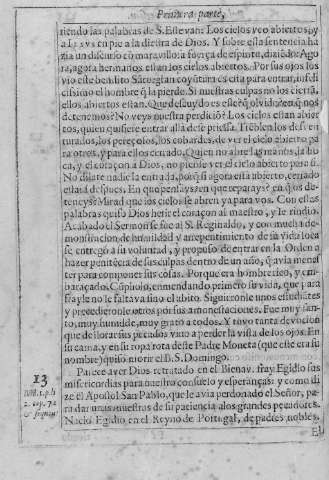 Primera parte,
riendo las palabras de S. Esteuan: Los cielos veo abiertos, y
a IESVS en pie a la diestra de Dios. Y sobre esta sentencia ha
zia vn discurso marauilloso a fuerça de espiritu, diziendo: Ago
ra, agora hermanos estan los cielos abiertos. Por sus ojos los
vio este bendito Santo
dicissimo el hombre q̃ la pierde. Si nuestras culpas no los cierrã,
ellos abiertos estan. Que descuydo es este? q̃ oluido? en q̃ nos
detenemos? No veys nuestra perdiciõ? Los cielos estan abier
tos, quien quisiere entrar allà dese priessa. Tiẽblen los desuen
turados, los pereçosos, los cobardes, de ver el cielo abierto pa
ra otros, y para ellos cerrado. Quien no abre las manos, la bo
ca, y el coraçon a Dios, no piense ver el cielo abierto para si.
No dilate nadie la entrada, porq̃ si agora està abierto, cerrado
estarà despues. En que pensays? en que reparays? en q̃ os de
teneys? Mirad que los cielos se abren ya para vos. Con estas
palabras quiso Dios herir el coraçon al maestro, y le rindio.
Acabado el Sermon se fue al S. Reginaldo, y con mucha de-
monstracion de humildad y arrepentimiento de su vida loca
se entregò a su voluntad, y propuso de entrar en la Orden a
hazer penitẽcia de sus culpas dentro de vn año, q̃ auia menes
ter para componer sus cosas. Porque era hombre rico, y em-
baraçado. Cũpliolo, enmendando primero su vida, que para
frayle no le faltaua sino el abito. Siguieronle vnos estudiãtes
y precedieronle otros por sus amonestaciones. Fue muy san-
to, muy humilde, muy grato a todos. Y tuuo tanta deuocion
que de llorar sus pecados vino a perder la vista de los ojos. En
su cama, y en su ropa rota deste Padre Moneta (que este era su
nombre) quiso morir el P. S. Domingo.
Parece auer Dios retratado en el Bienau. fray Egidio sus
misericordias para nuestro consuelo y esperanças: y como di
ze el Apostol San Pablo, que le auia perdonado el Señor, pa-
ra dar vnas muestras de su paciencia a los grandes pecadores.
Nacio Egidio en el Reyno de Portugal, de padres nobles.
13